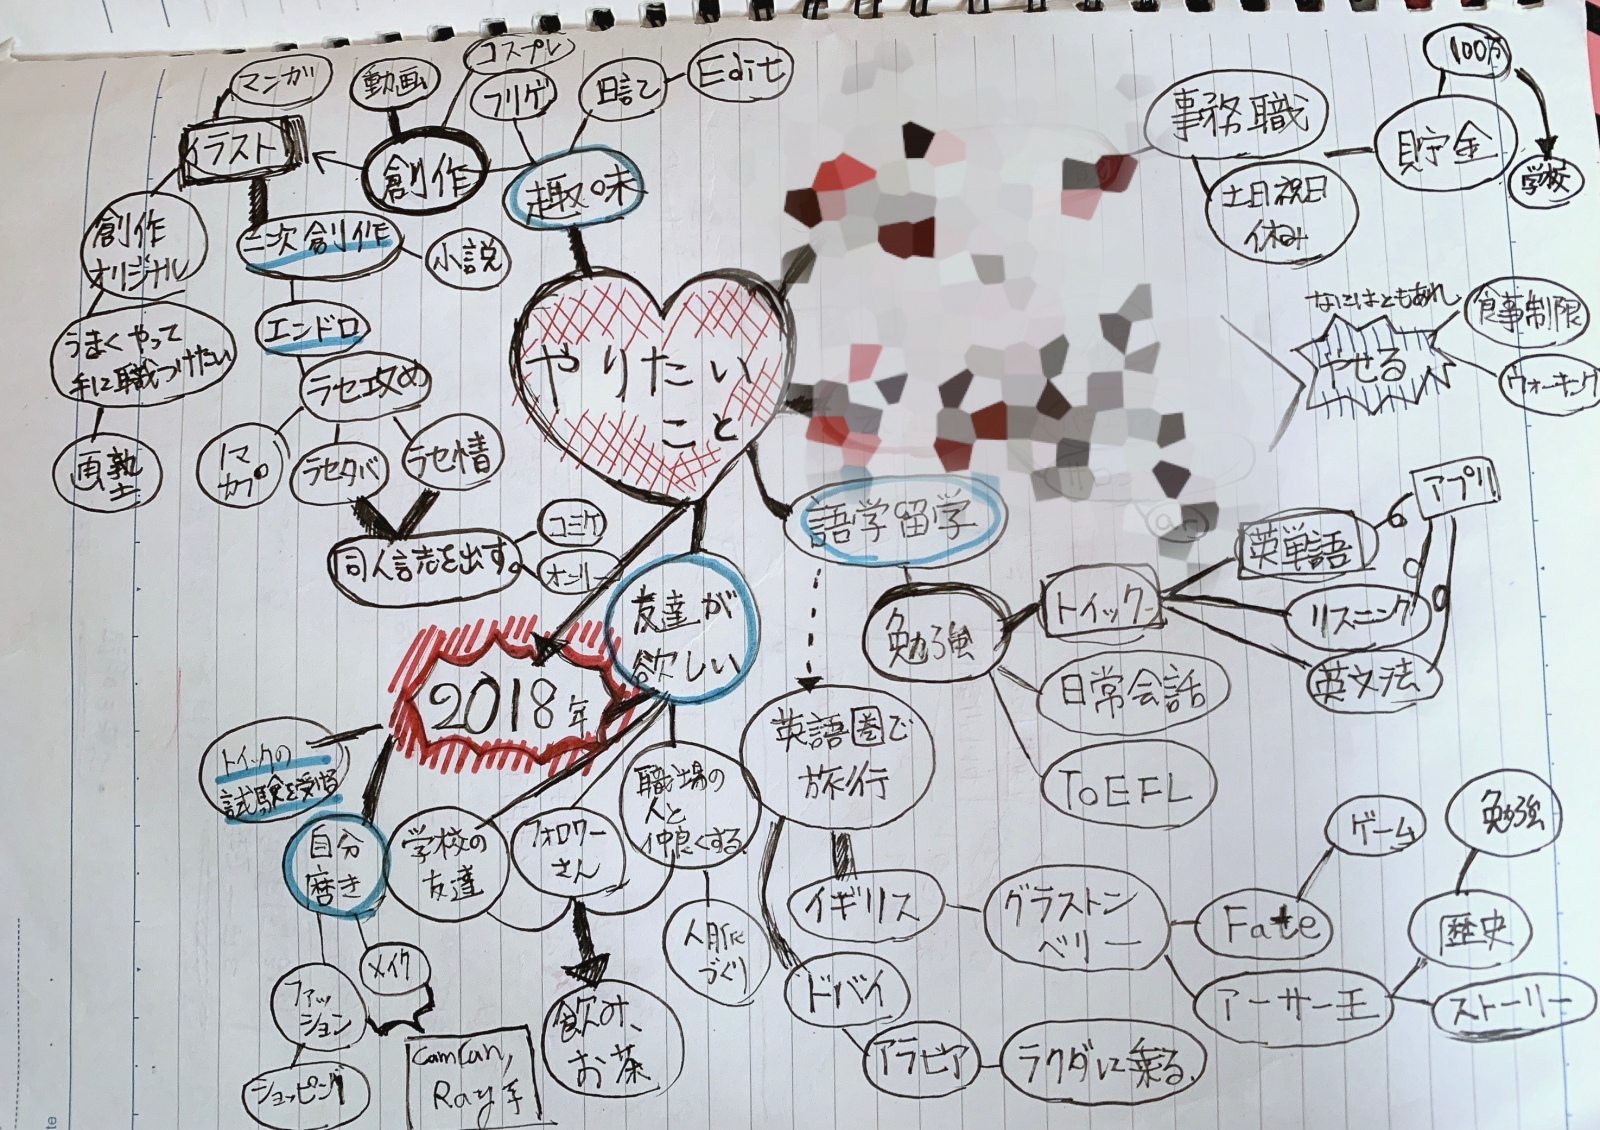 コスプレ
マンガ
動画
フリゲ
日記
Edit
イラスト
創作
趣味
創作
オリジナル
二次創作
小説
エンドロ
うまくやって
手に職つけたい
ラセ攻め
画塾
ラセタバ
ラセ情
同人誌を出す。
コミケ
オンリー
やりたい
こと
事務職
土日祝日
休み
100万
貯金
学校
なにはともあれ
やせる
食事制限
ウォーキング
語学留学
勉強
トイック
英単語
アプリ
リスニング
英文法
日常会話
TOEFL
友達が
欲しい
2018年
トイックの
試験を受ける
自分
磨き
学校の
友達
フォロワー
さん
職場の
人と
仲良くする。
人脈
づくり
飲み、
お茶
メイク
ファッ
ション
ショッピング
CanCan,
Ray系
英語圏で
旅行
イギリス
グラストン
ベリー
Fate
ゲーム
アーサー王
歴史
勉強
ストーリー
ドバイ
アラビア
ラクダに乗る。